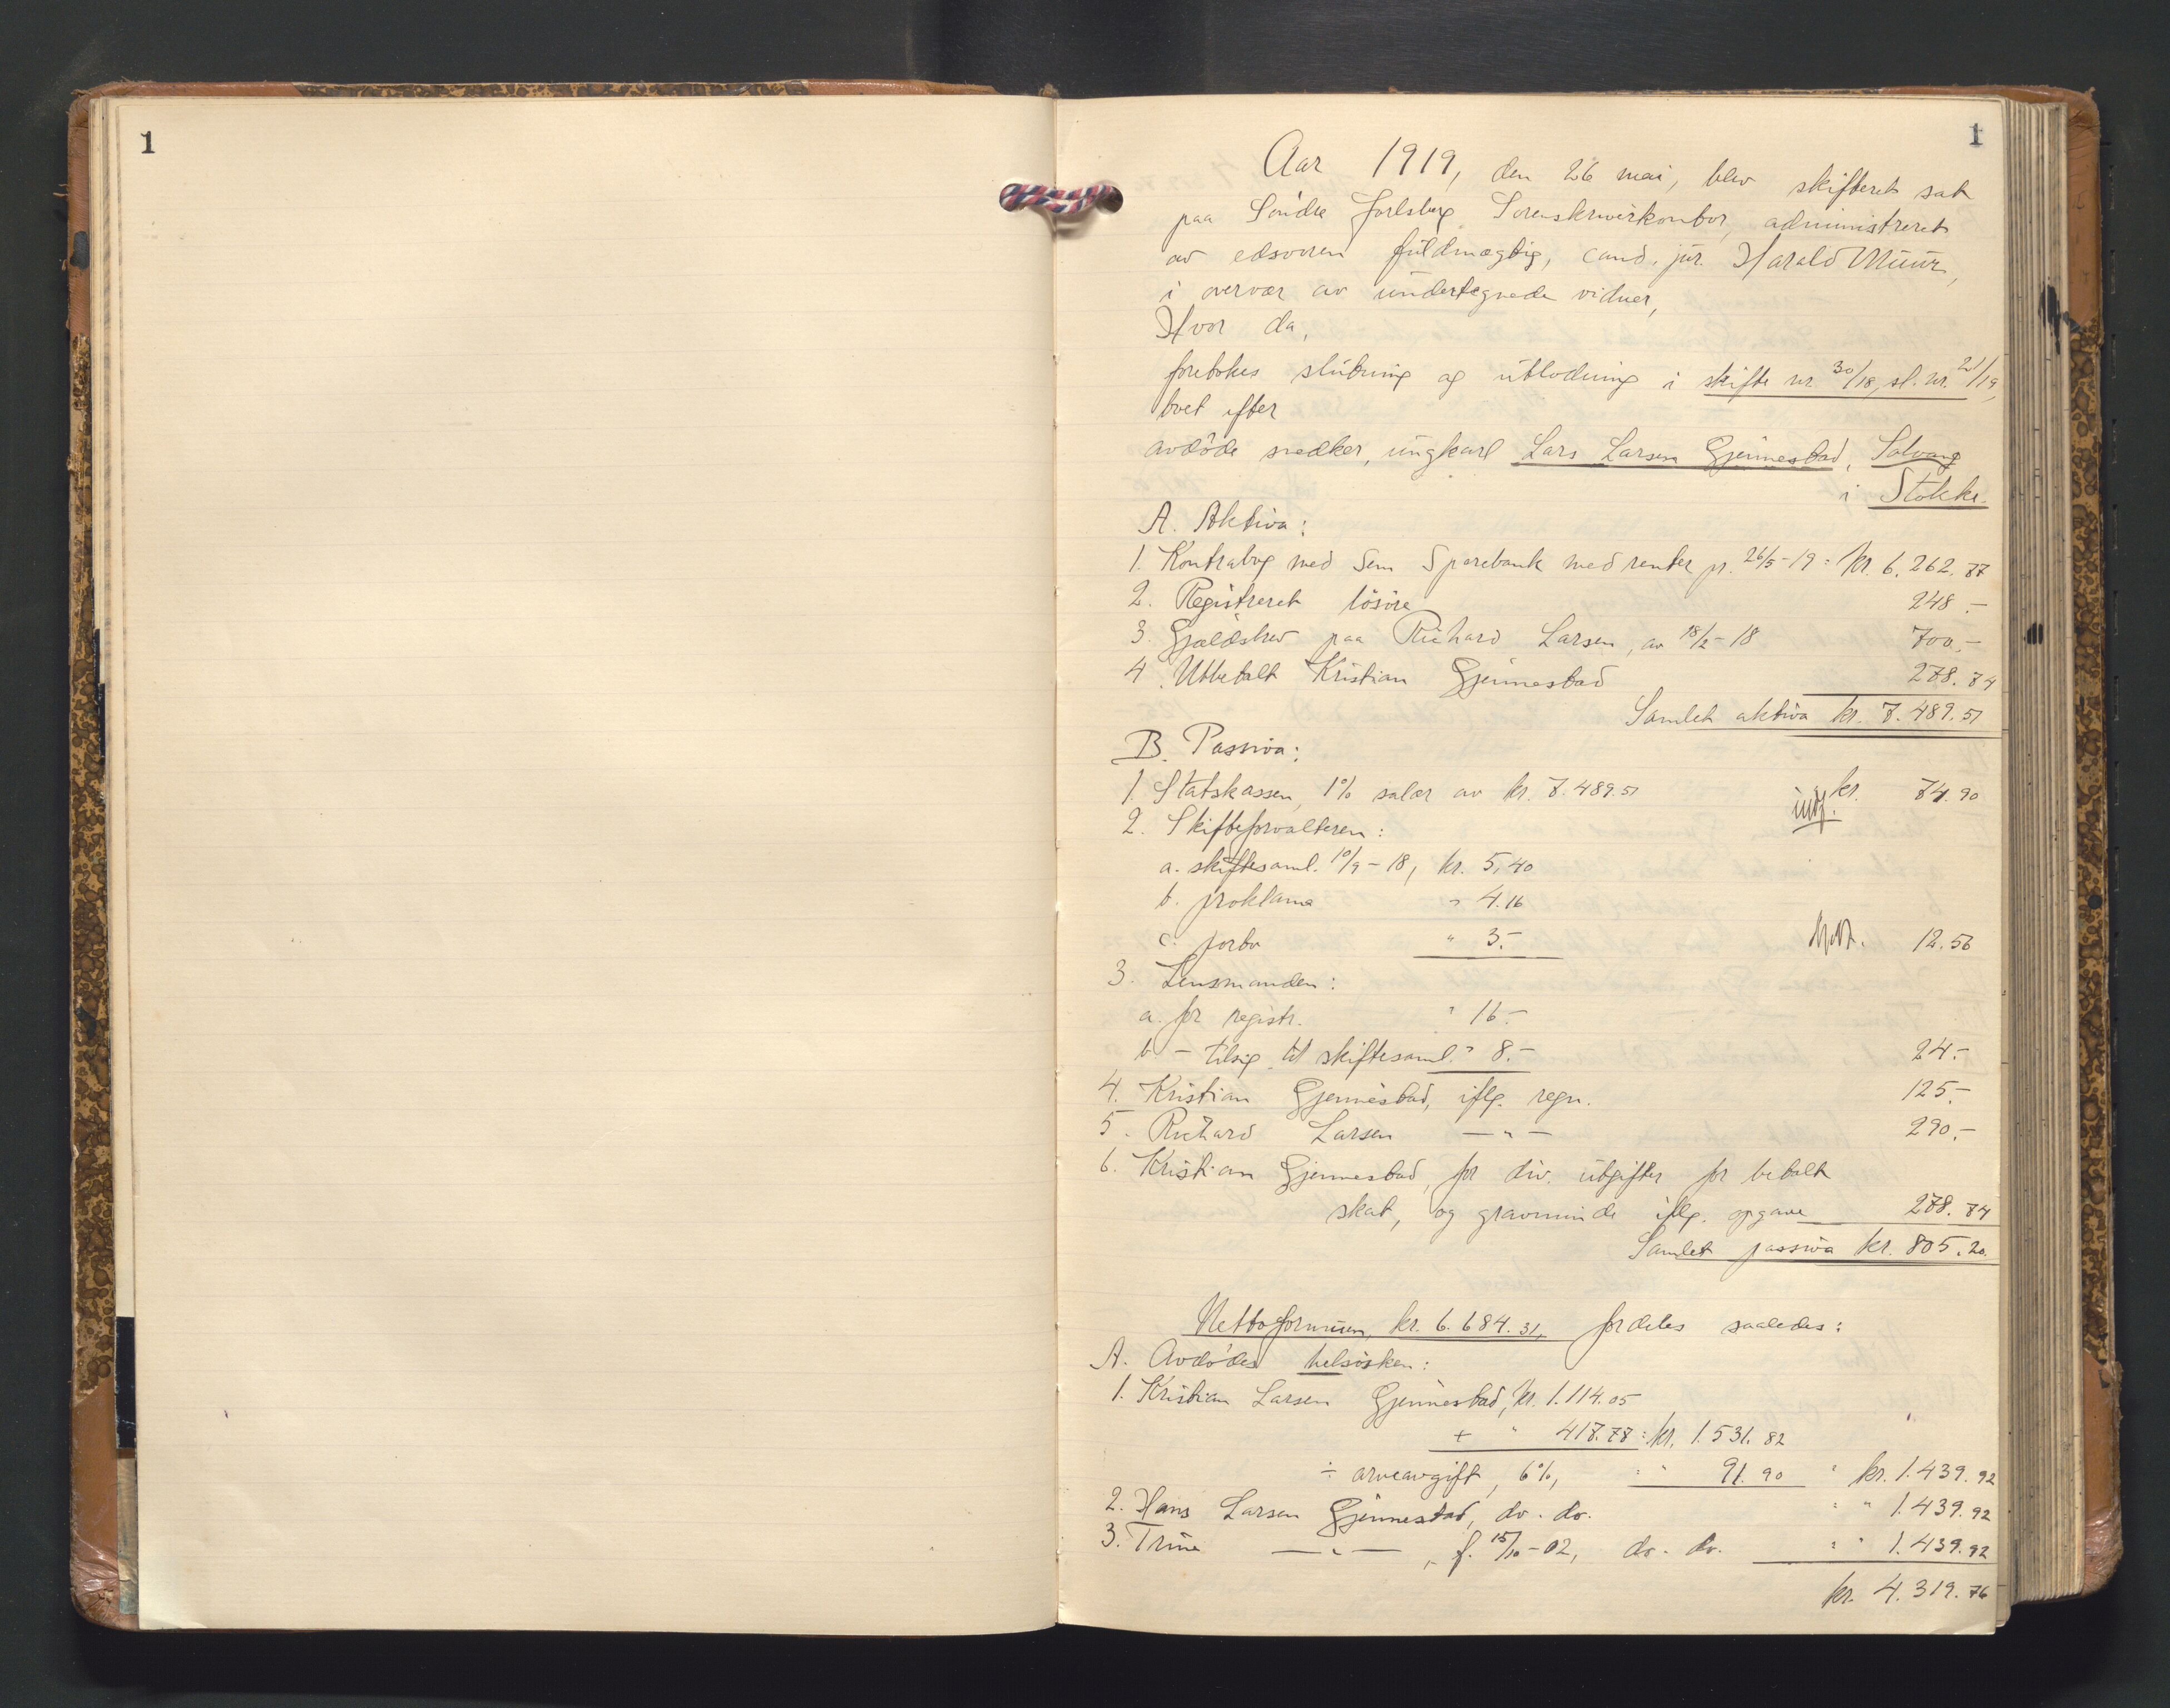 1
1
Aar 1919, den 26 mai, blev skifteret sat
paa Søndre Jarlsberg Sorenskriverkontor, administreret
av edsvoren fuldmægtig, cand. jur. Harald Muur,
i overvær av undertegnede vidner,
Hvor da,
foretokes slutning og utlodning i skifte nr. 30/18, sl. nr. 21/19,
boet efter
avdøde snedker, ungkarl Lars Larsen Gjennestad, Solvang
i Stokke.
A. Aktiva:
1. Kontrabog med Sem Sparebank med renter pr. 26/5-19 = kr. 6.262.77
2. Registreret løsøre 248.-
3. Gjældsbrev paa Richard Larsen, av 18/2-18 700.-
4. Utbetalt Kristian Gjennestad 278.74
Samlet aktiva kr. 7.489.51
B. Passiva:
1. Statskassen, 1% salær av kr. 7.489.51 kr. 74.90
2. Skifteforvalteren:
a. skiftesaml. 10/9-18, kr. 5.40
b. proklama " 4.16
c. porto " 3.- 12.56
3. Lensmanden:
a. for registr. " 16.-
b. - tilsig. til skiftesaml. " 8.- 24.-
4. Kristian Gjennestad, iflg. regn. 125.-
5. Richard Larsen —"— 290.-
6. Kristian Gjennestad, for div. utgifter for betalt
skat, og gravminde iflg. opgave 278.74
Samlet passiva kr. 805.20.
Nettoformuen, kr. 6.684.31, fordeles saaledes:
A. Avdødes helsøsken:
1. Kristian Larsen Gjennestad, kr. 1.114.05
+ " 417.78 = kr. 1.531.82
÷ arveavgift, 6%, = " 91.90 = kr. 1.439.92
2. Hans Larsen Gjennestad, do. do. = " 1.439.92
3. Trine —"—, f. 15/10-02, do. do. = " 1.439.92
kr. 4.319.76